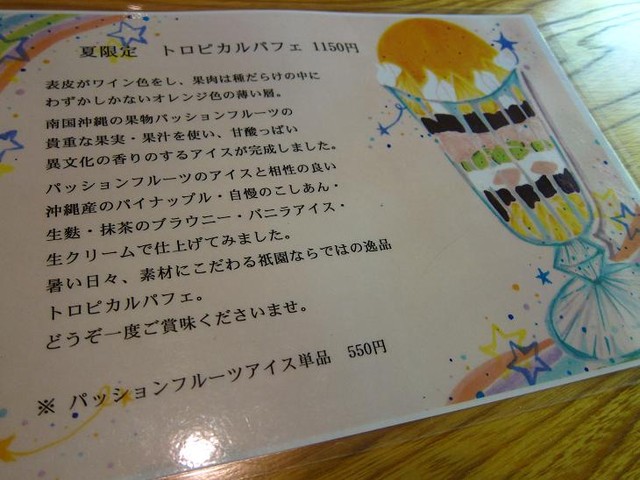 夏限定　トロピカルパフェ 1150円
表皮がワイン色をし、果肉は種だらけの中に
わずかしかないオレンジ色の薄い層。
南国沖縄の果物パッションフルーツの
貴重な果実・果汁を使い、甘酸っぱい
異文化の香りのするアイスが完成しました。
パッションフルーツのアイスと相性の良い
沖縄産のパイナップル・自慢のこしあん・
生麩・抹茶のブラウニー・バニラアイス・
生クリームで仕上げてみました。
暑い日々、素材にこだわる祇園ならではの逸品
トロピカルパフェ。
どうぞ一度ご賞味くださいませ。
※ パッションフルーツアイス単品　550円